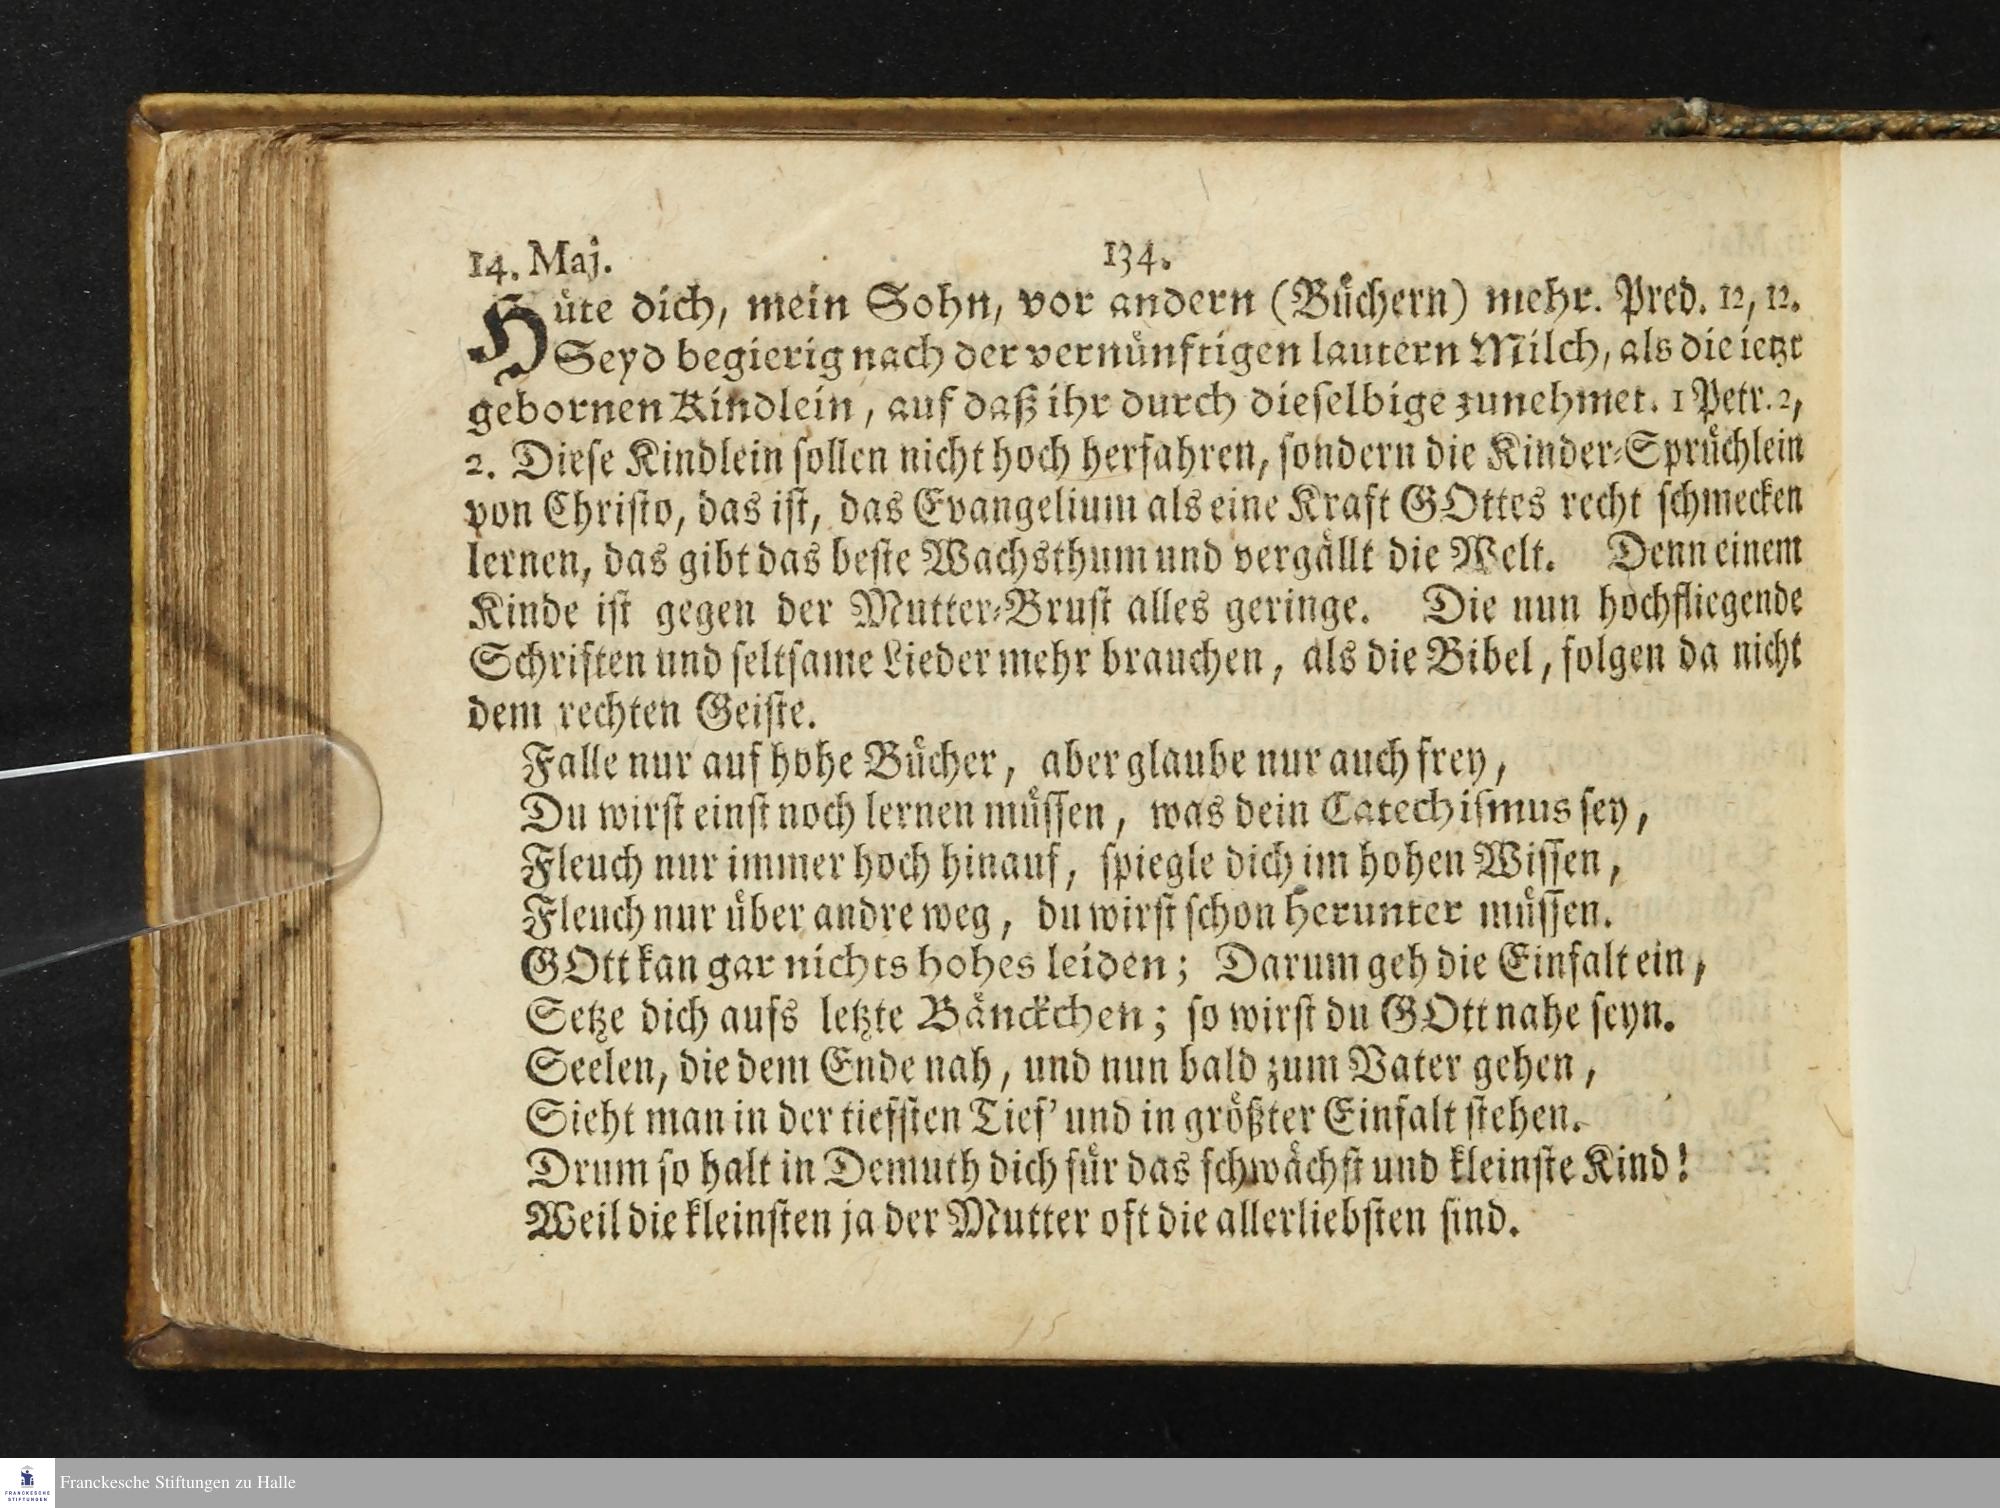 14. Maj. 134.
Hüte dich, mein Sohn, vor andern (Büchern) mehr. Pred. 12, 12.
Seyd begierig nach der vernünftigen lautern Milch, als die ietzt
gebornen Kindlein, auf daß ihr durch dieselbige zunehmet. 1 Petr. 2,
2. Diese Kindlein sollen nicht hoch herfahren, sondern die Kinder-Sprüchlein
von Christo, das ist, das Evangelium als eine Kraft GOttes recht schmecken
lernen, das gibt das beste Wachsthum und vergällt die Welt. Denn einem
Kinde ist gegen der Mutter-Brust alles geringe. Die nun hochfliegende
Schriften und seltsame Lieder mehr brauchen, als die Bibel, folgen da nicht
dem rechten Geiste.
Falle nur auf hohe Bücher, aber glaube nur auch frey,
Du wirst einst noch lernen müssen, was dein Catechismus sey,
Fleuch nur immer hoch hinauf, spiegle dich im hohen Wissen,
Fleuch nur über andre weg, du wirst schon herunter müssen.
GOtt kan gar nichts hohes leiden; Darum geh die Einfalt ein,
Setze dich aufs letzte Bänckchen; so wirst du GOtt nahe seyn.
Seelen, die dem Ende nah, und nun bald zum Vater gehen,
Sieht man in der tiefsten Tief' und in größter Einfalt stehen.
Drum so halt in Demuth dich für das schwächst und kleinste Kind!
Weil die kleinsten ja der Mutter oft die allerliebsten sind.
FRANCKESCHE
STIFTUNGEN
Franckesche Stiftungen zu Halle